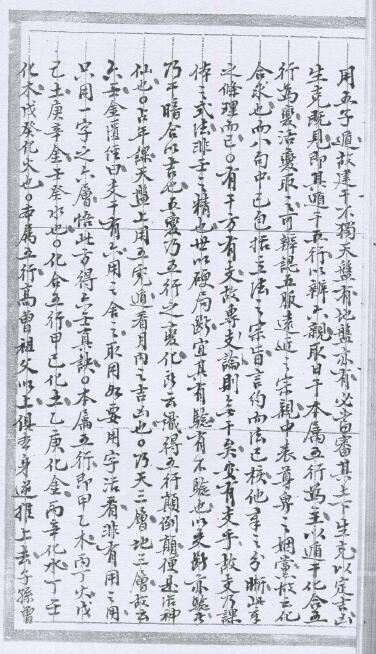 用五子遁故建干不獨天盤有地盤亦有必當審其上下生克以定吉凶
生克既見即其遁干五行以辨六親取日干本屬五行為主以遁干化合五
行為變活彙取之可辨認五服遠近之宗親中表尊卑之姻黨戚云化
合永也而八句中已包括立法之宗旨言約而法已核他年之分晰此
之條理而已○有干方有支故專支論則無干矣安有支乎故支乃課
體之式法非壬之精也世以硬局斷宜其有驗有不驗也以爻斷亦驗
乃干暗合以吉也五變乃五行之變化所云識得五行顛倒顛便是活神
仙也○古年課天盤上用五虎遁看月內之吉凶也○乃天三層地三層故云
六壬金匱經曰支干有六用之舍之取用如要用字活看非有用之用
只用一字之六層悟此方得六壬真訣○本屬五行即甲乙木丙丁火戊
己土庚辛金壬癸水也○化合五行甲己化土乙庚化金丙辛化水丁壬
化木戊癸化火也○本屬五行高曾祖父以上俱查身逆推上去子孫曾